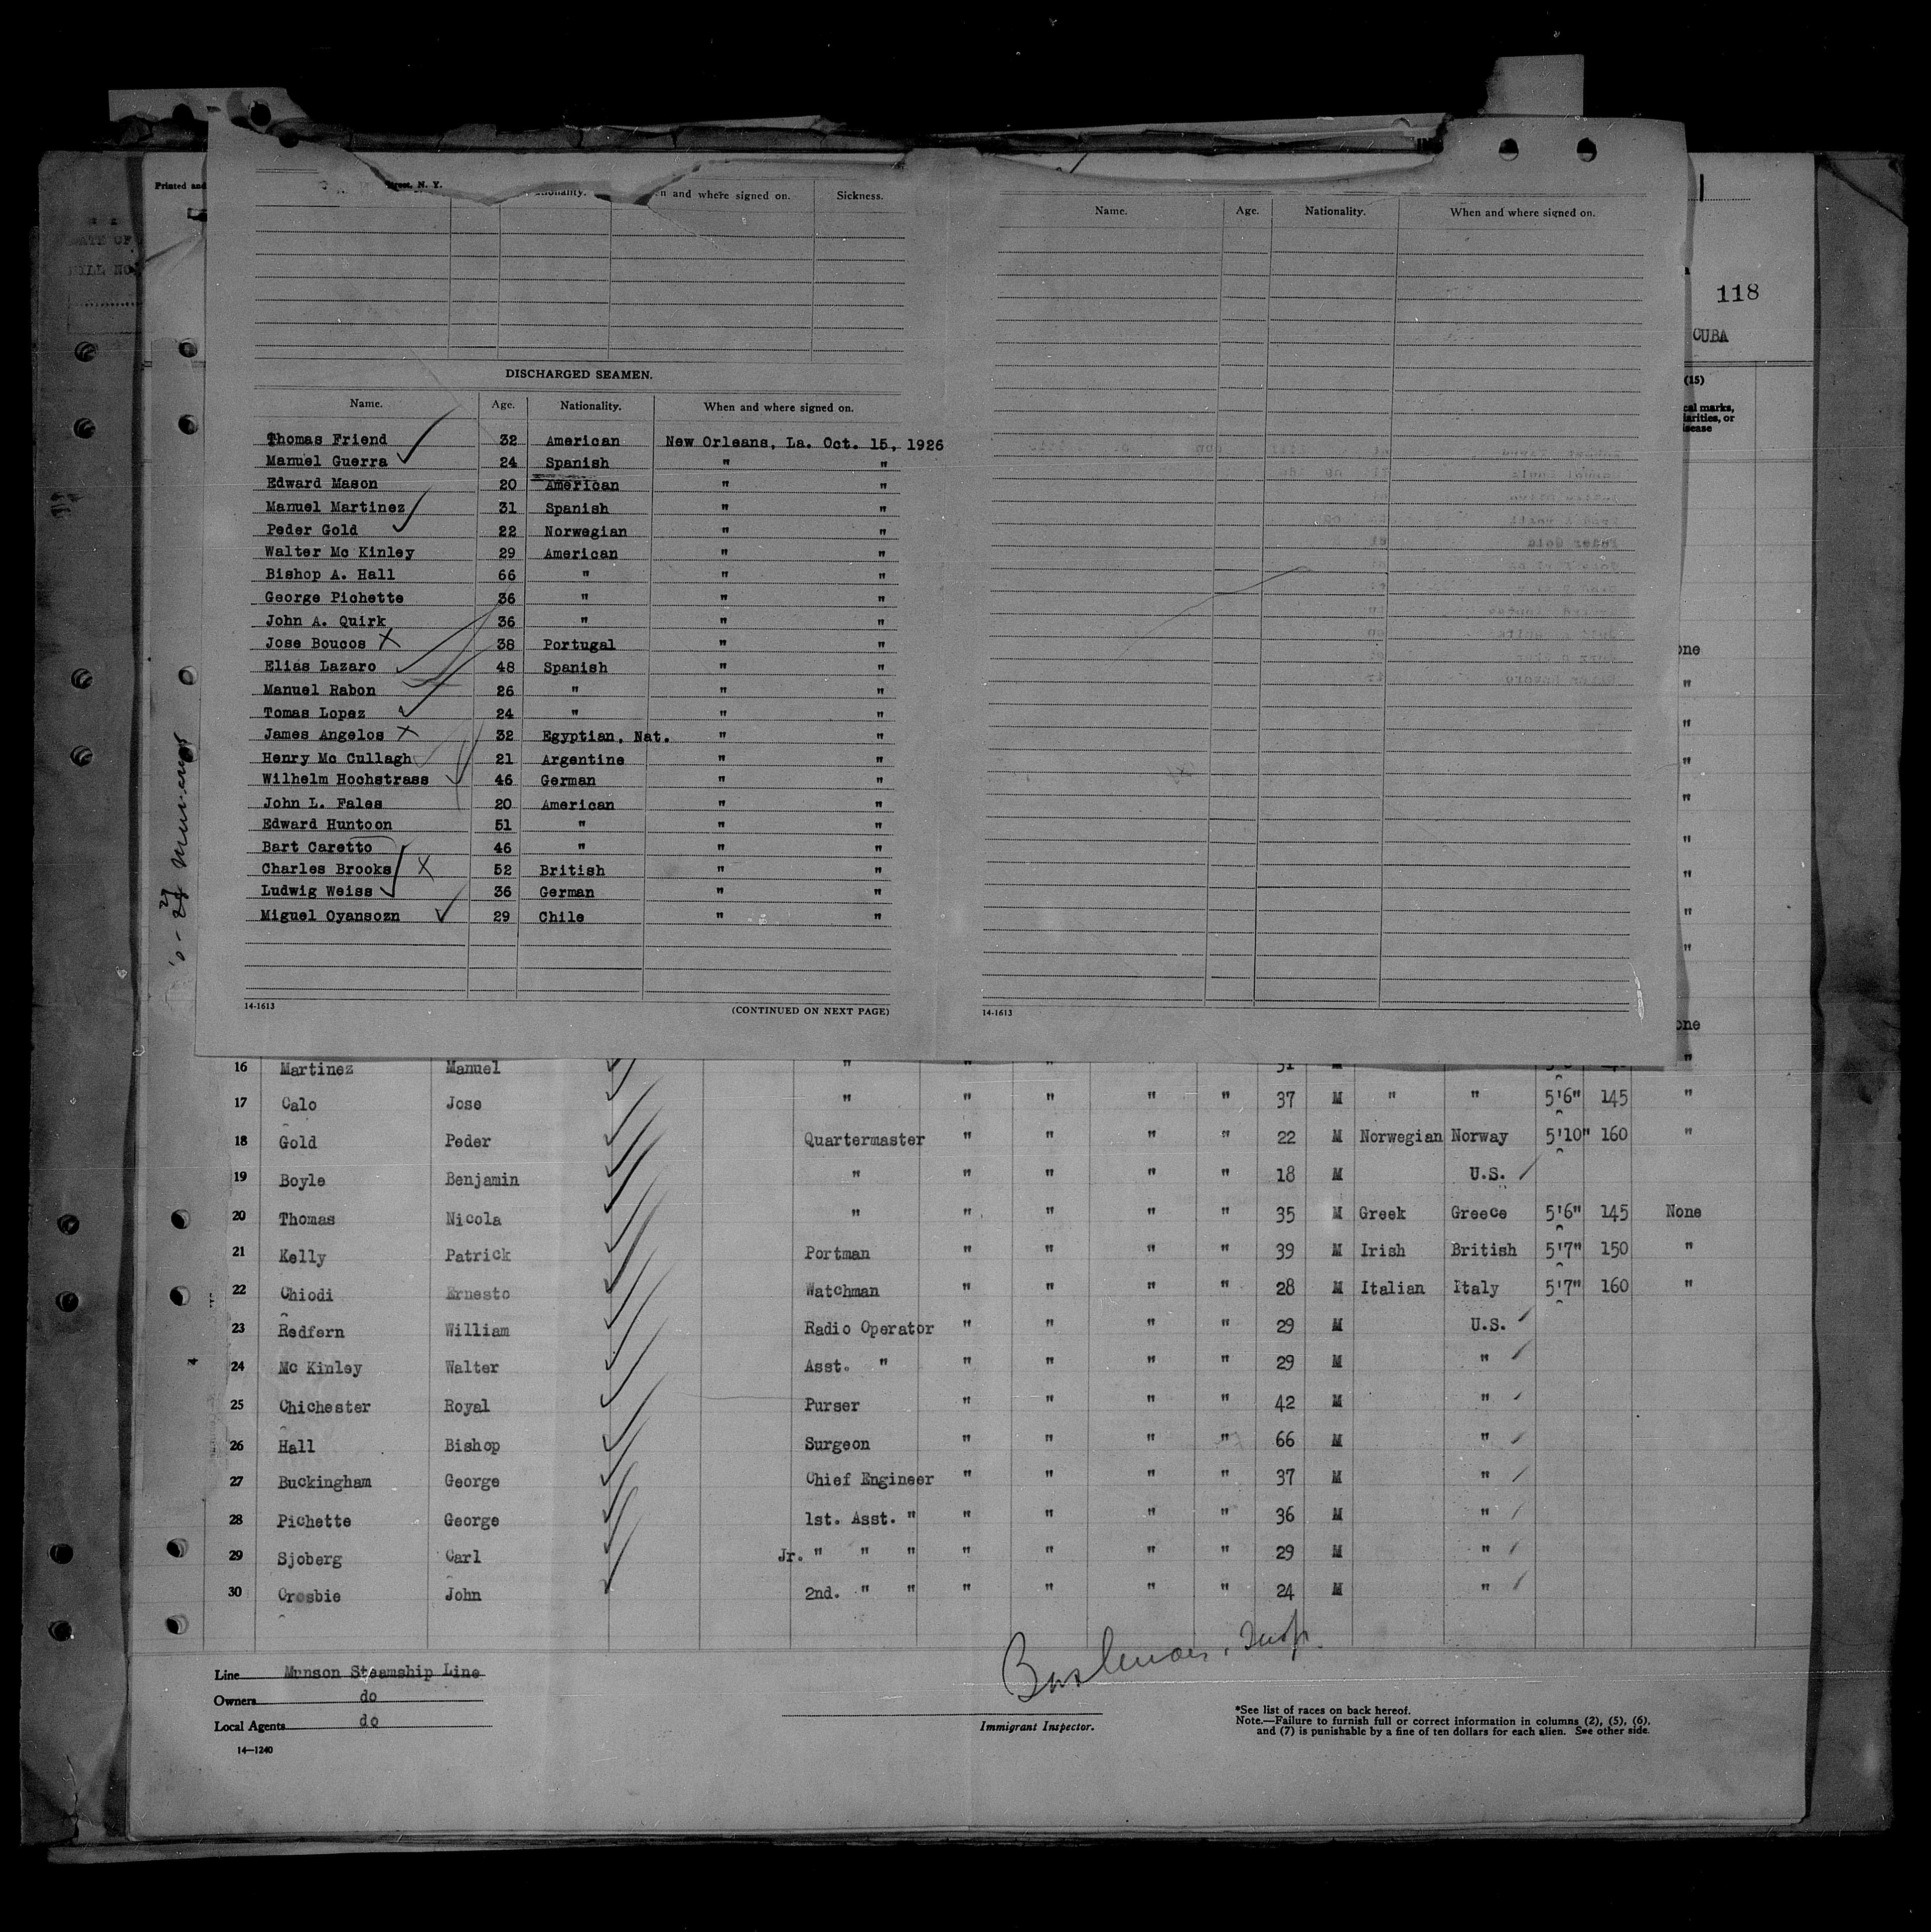 Printed and
Street, N. Y.
and where signed on. Sickness.
Name. Age. Nationality. When and where signed on.
118
CUBA
(15)
DISCHARGED SEAMEN.
Name. Age. Nationality. When and where signed on.
Thomas Friend 32 American New Orleans, La. Oct. 15, 1926
Manuel Guerra 24 Spanish " "
Edward Mason 20 American " "
Manuel Martinez 31 Spanish " "
Peder Gold 22 Norwegian " "
Walter Mc Kinley 29 American " "
Bishop A. Hall 66 " " "
George Pichette 36 " " "
John A. Quirk 36 " " "
Jose Boucos X 38 Portugal " "
Elias Lazaro 48 Spanish " "
Manuel Rabon 26 " " "
Tomas Lopez 24 " " "
James Angelos X 32 Egyptian, Nat. " "
Henry Mc Cullagh 21 Argentine " "
Wilhelm Hochstrass 46 German " "
John L. Fales 20 American " "
Edward Huntoon 51 " " "
Bart Caretto 46 " " "
Charles Brooks X 52 British " "
Ludwig Weiss 36 German " "
Miguel Oyansozn 29 Chile " "
14-1613 (CONTINUED ON NEXT PAGE) 14-1613
16 Martinez Manuel " " " " 31 M
17 Calo Jose " " " " " 37 M " " 5'6" 145 "
18 Gold Peder Quartermaster " " " " 22 M Norwegian Norway 5'10" 160 "
19 Boyle Benjamin " " " " " 18 M U.S.
20 Thomas Nicola " " " " " 35 M Greek Greece 5'6" 145 None
21 Kelly Patrick Portman " " " " 39 M Irish British 5'7" 150 "
22 Chiodi Ernesto Watchman " " " " 28 M Italian Italy 5'7" 160 "
23 Redfern William Radio Operator " " " " 29 M U.S.
24 Mc Kinley Walter Asst. " " " " " 29 M "
25 Chichester Royal Purser " " " " 42 M "
26 Hall Bishop Surgeon " " " " 66 M "
27 Buckingham George Chief Engineer " " " " 37 M "
28 Pichette George 1st. Asst. " " " " " 36 M "
29 Sjoberg Carl Jr. " " " " " " " 29 M "
30 Crosbie John 2nd. " " " " " " 24 M "
Line Munson Steamship Line
Owners do
Local Agents do
14—1240
Immigrant Inspector.
*See list of races on back hereof.
Note.—Failure to furnish full or correct information in columns (2), (5), (6),
and (7) is punishable by a fine of ten dollars for each alien. See other side.